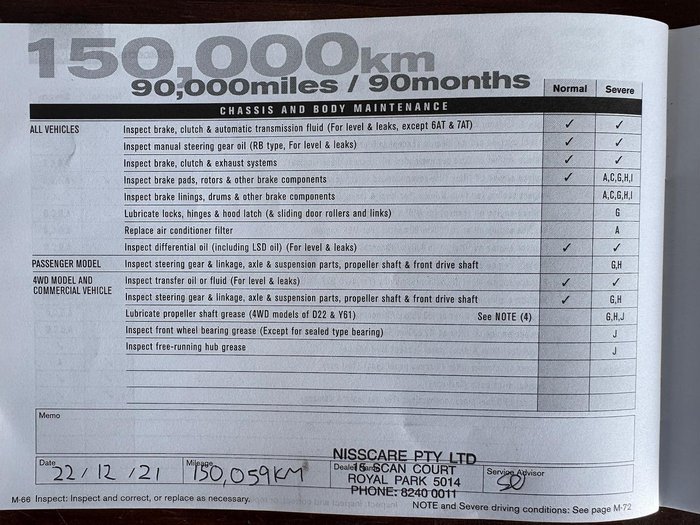 150,000km
90,000miles / 90months
Normal Severe
CHASSIS AND BODY MAINTENANCE
ALL VEHICLES Inspect brake, clutch & automatic transmission fluid (For level & leaks, except 6AT & 7AT) ✓ ✓
Inspect manual steering gear oil (RB type, For level & leaks) ✓ ✓
Inspect brake, clutch & exhaust systems ✓ ✓
Inspect brake pads, rotors & other brake components ✓ A,C,G,H,I
Inspect brake linings, drums & other brake components A,C,G,H,I
Lubricate locks, hinges & hood latch (& sliding door rollers and links) G
Replace air conditioner filter A
Inspect differential oil (including LSD oil) (For level & leaks) ✓ ✓
PASSENGER MODEL Inspect steering gear & linkage, axle & suspension parts, propeller shaft & front drive shaft G,H
4WD MODEL AND COMMERCIAL VEHICLE Inspect transfer oil or fluid (For level & leaks) ✓ ✓
Inspect steering gear & linkage, axle & suspension parts, propeller shaft & front drive shaft ✓ G,H
Lubricate propeller shaft grease (4WD models of D22 & Y61) See NOTE (4) G,H,J
Inspect front wheel bearing grease (Except for sealed type bearing) J
Inspect free-running hub grease J
Memo
Date 22/12/21
Mileage 150,059KM
NISSCARE PTY LTD
15 SCAN COURT
ROYAL PARK 5014
PHONE: 8240 0011
Service Advisor
M-66 Inspect: Inspect and correct, or replace as necessary.
NOTE and Severe driving conditions: See page M-72